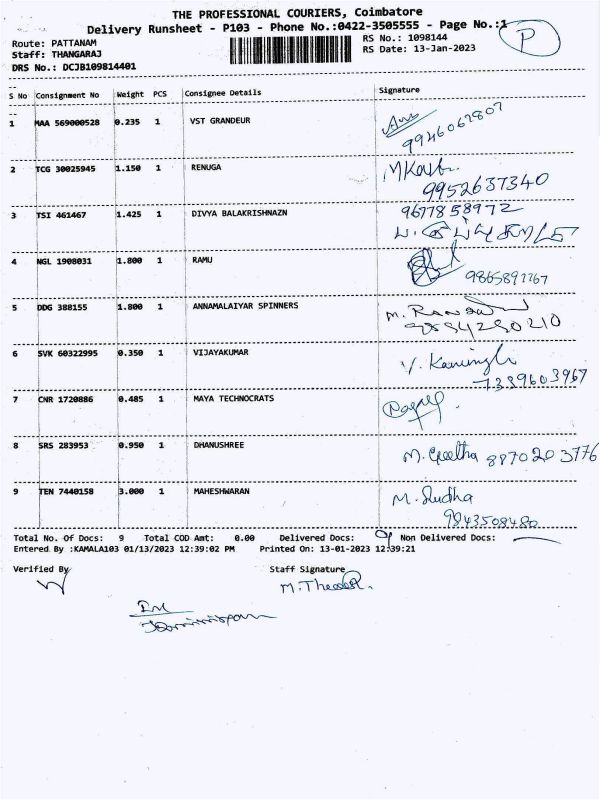 THE PROFESSIONAL COURIERS, Coimbatore
Delivery Runsheet - P103 - Phone No.:0422-3505555 - Page No.:1
P
Route: PATTANAM
RS No.: 1098144
Staff: THANGARAJ
RS Date: 13-Jan-2023
DRS No.: DCJB109814401
S No Consignment No Weight PCS Consignee Details Signature
1 MAA 569000528 0.235 1 VST GRANDEUR
9946067807
2 TCG 30025945 1.150 1 RENUGA
9952637340
3 TSI 461467 1.425 1 DIVYA BALAKRISHNAZN 9677858972
4 NGL 1908031 1.800 1 RAMU
5 DDG 388155 1.800 1 ANNAMALAIYAR SPINNERS
6 SVK 60322995 0.350 1 VIJAYAKUMAR
7339603967
7 CNR 1720886 0.485 1 MAYA TECHNOCRATS
8 SRS 283953 0.950 1 DHANUSHREE
M. Geetha 8870203776
9 TEN 7440158 3.000 1 MAHESHWARAN
M. Sudha
9843508480
Total No. Of Docs: 9 Total COD Amt: 0.00 Delivered Docs: 9 Non Delivered Docs:
Entered By :KAMALA103 01/13/2023 12:39:02 PM Printed On: 13-01-2023 12:39:21
Verified By Staff Signature